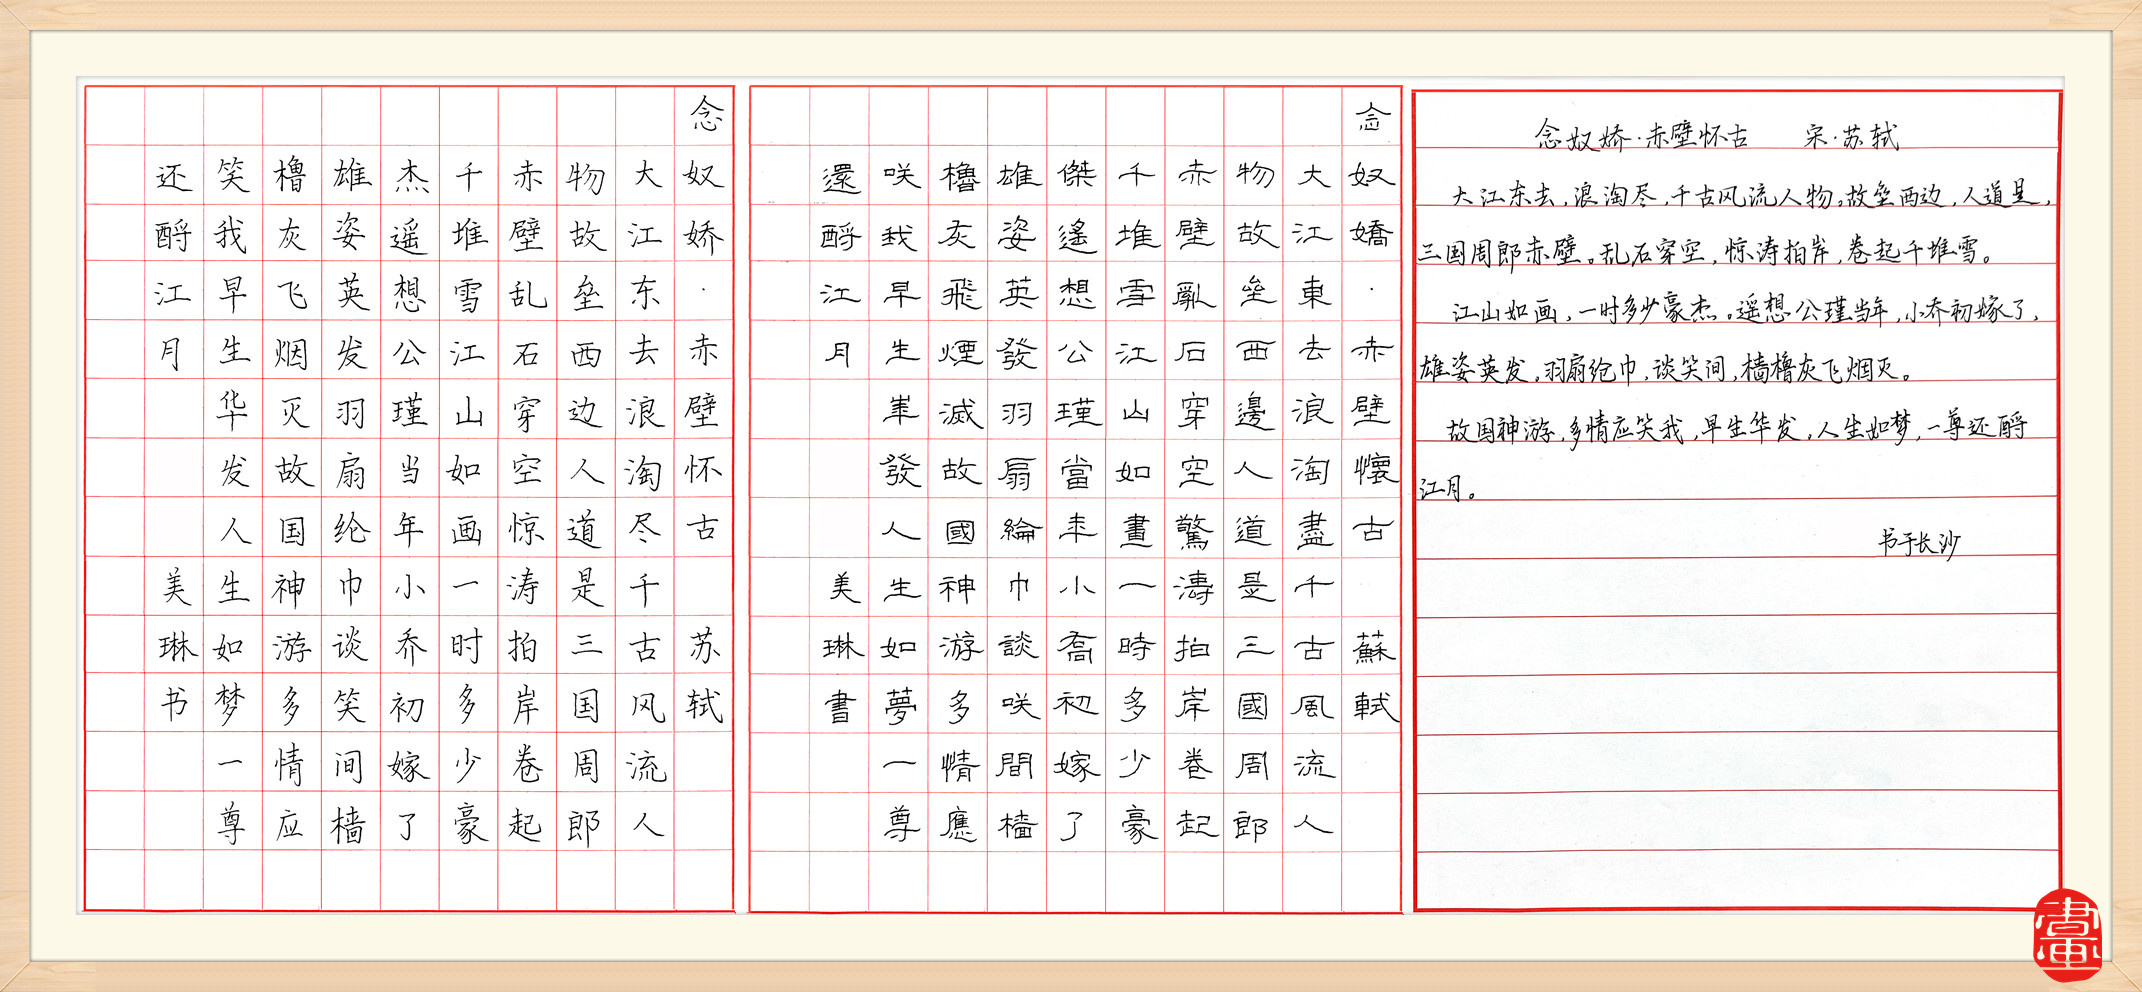 念奴娇·赤壁怀古 苏轼
大江东去浪淘尽千古风流人
物故垒西边人道是三国周郎
赤壁乱石穿空惊涛拍岸卷起
千堆雪江山如画一时多少豪
杰遥想公瑾当年小乔初嫁了
雄姿英发羽扇纶巾谈笑间樯
橹灰飞烟灭故国神游多情应
笑我早生华发人生如梦一尊
还酹江月 美琳书
念奴嬌·赤壁懷古 蘇軾
大江東去浪淘盡千古風流人
物故垒西邊人道是三國周郎
赤壁亂石穿空驚濤拍岸卷起
千堆雪江山如畫一時多少豪
傑遙想公瑾當年小喬初嫁了
雄姿英發羽扇綸巾談咲間樯
櫓灰飛煙滅故國神游多情應
咲我早生華發人生如夢一尊
還酹江月 美琳書
念奴娇·赤壁怀古 宋·苏轼
大江东去,浪淘尽,千古风流人物。故垒西边,人道是,
三国周郎赤壁。乱石穿空,惊涛拍岸,卷起千堆雪。
江山如画,一时多少豪杰。遥想公瑾当年,小乔初嫁了,
雄姿英发。羽扇纶巾,谈笑间,樯橹灰飞烟灭。
故国神游,多情应笑我,早生华发。人生如梦,一尊还酹
江月。
书于长沙